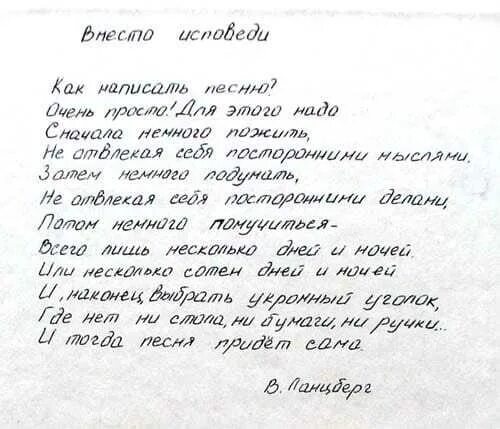 Вместо исповеди
Как написать песню?
Очень просто! Для этого надо
Сначала немного пожить,
Не отвлекая себя посторонними мыслями.
Затем немного подумать,
Не отвлекая себя посторонними делами,
Потом немного помучиться-
Всего лишь несколько дней и ночей.
Или несколько сотен дней и ночей
И, наконец, выбрать укромный уголок,
Где нет ни стола, ни бумаги, ни ручки...
И тогда песня придёт сама.
В. Ланцберг